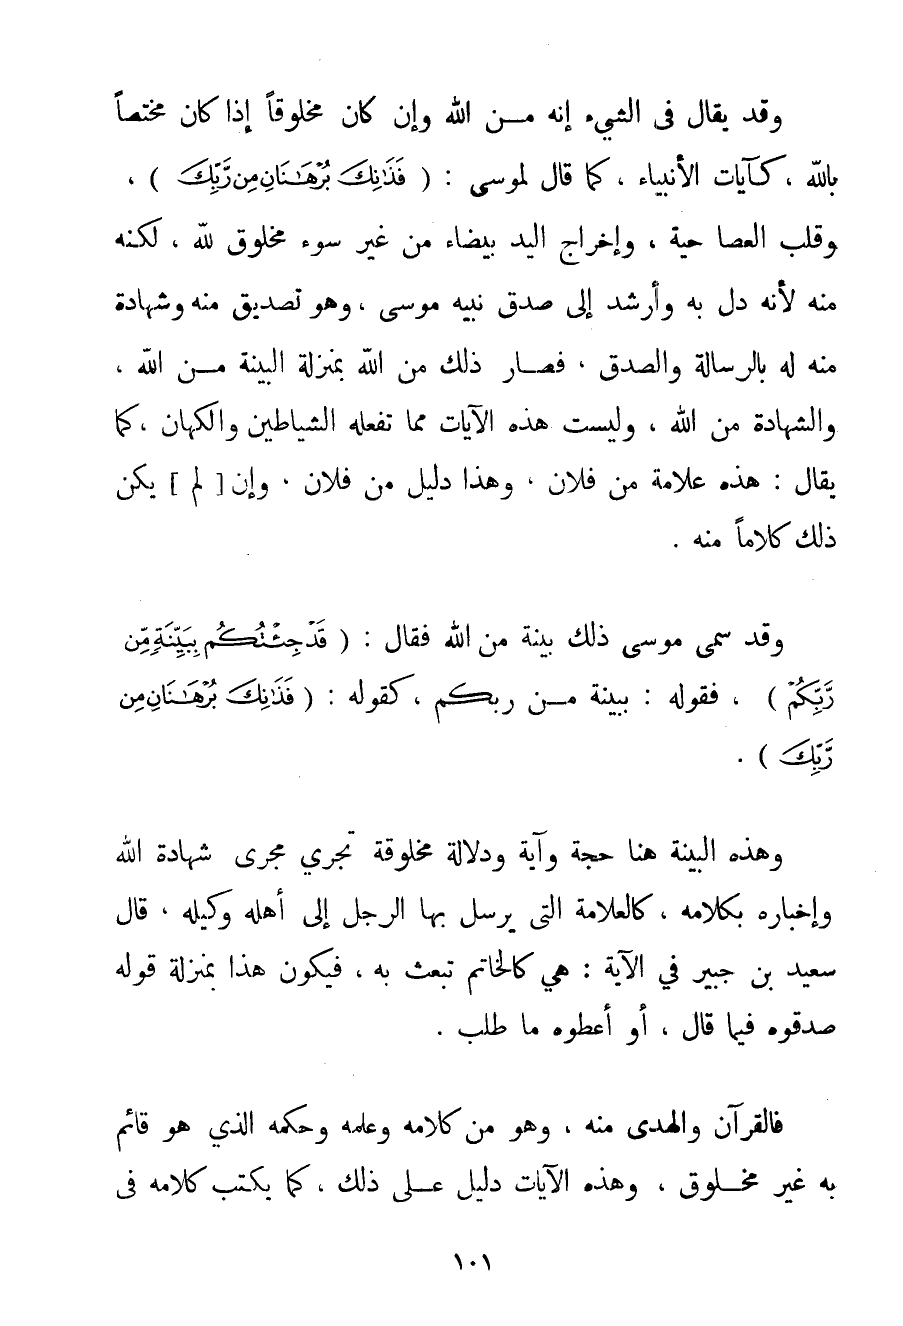 وقد يقال فى الشيء إنه مــن الله وإن كان مخلوقاً إذا كان مختصاً
بالله ، كـآيات الأنبياء ، كما قال لموسى : ( فَذَٰنِكَ بُرْهَٰنَانِ مِن رَّبِّكَ ) ،
وقلب العصا حية ، وإخراج اليد بيضاء من غير سوء مخلوق لله ، لكنه
منه لأنه دل به وأرشد إلى صدق نبيه موسى ، وهو تصديق منه وشهادة
منه له بالرسالة والصدق ، فصــار ذلك من الله بمنزلة البينة مــن الله ،
والشهادة من الله ، وليست هذه الآيات مما تفعله الشياطين والكهان ، كما
يقال : هذه علامة من فلان ، وهذا دليل من فلان ، وإن [ لم ] يكن
ذلك كلاماً منه .
وقد سمى موسى ذلك بينة من الله فقال : ( قَدْ جِئْتُكُم بِبَيِّنَةٍ مِّن
رَّبِّكُمْ ) ، فقوله : ببينة مــن ربكم ، كقوله : ( فَذَٰنِكَ بُرْهَٰنَانِ مِن
رَّبِّكَ ) .
وهذه البينة هنا حجة وآية ودلالة مخلوقة تجري مجرى شهادة الله
وإخباره بكلامه ، كالعلامة التى يرسل بها الرجل إلى أهله وكيله ، قال
سعيد بن جبير في الآية : هي كالخاتم تبعث به ، فيكون هذا بمنزلة قوله
صدقوه فيما قال ، أو أعطوه ما طلب .
فالقرآن والهدى منه ، وهو من كلامه وعلمه وحكمه الذي هو قائم
به غير مخــلوق ، وهذه الآيات دليل عــلى ذلك ، كما يكتب كلامه فى
١٠١